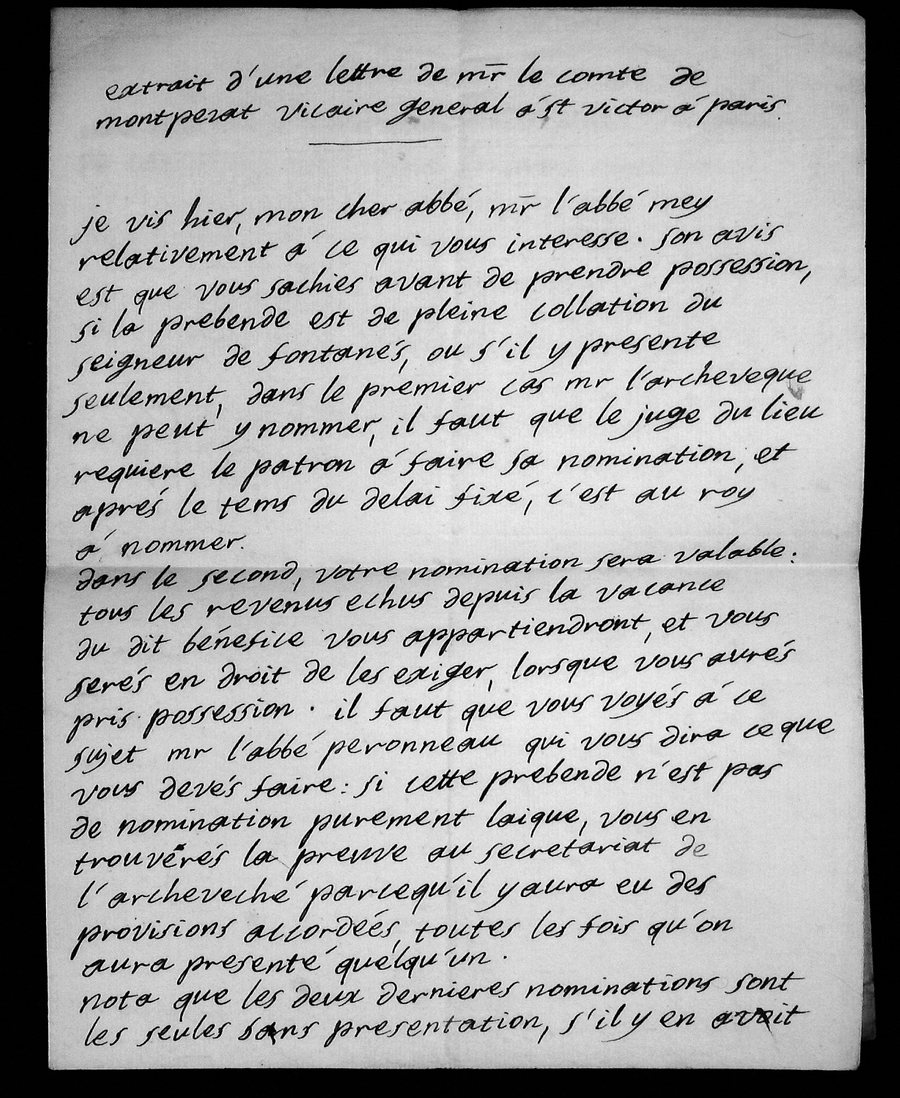 extrait d'une lettre de mr̄ le comte de
montpezat vicaire general á st victor á paris.
je vis hier, mon cher abbé, mr̄ l'abbé mey
relativement á ce qui vous interesse. son avis
est que vous sachies avant de prendre possession,
si la prebende est de pleine collation du
seigneur de fontanés, ou s'il y presente
seulement, dans le premier cas mr l'archeveque
ne peut y nommer, il faut que le juge du lieu
requiere le patron á faire sa nomination, et
aprés le tems du delai fixé, c'est au roy
á nommer.
dans le second, votre nomination sera valable:
tous les revenus echus depuis la vacance
du dit bénéfice vous appartiendront, et vous
serés en droit de les exiger, lorsque vous aurés
pris possession. il faut que vous voyés á ce
sujet mr l'abbé peronneau qui vous dira ce que
vous devés faire: si cette prebende n'est pas
de nomination purement laique, vous en
trouvérés la preuve au secretariat de
l'archeveché parcequ'il y aura eu des
provisions accordées, toutes les fois qu'on
aura presenté quelqu'un.
nota que les deux dernieres nominations sont
les seules sans presentation, s'il y en avoit